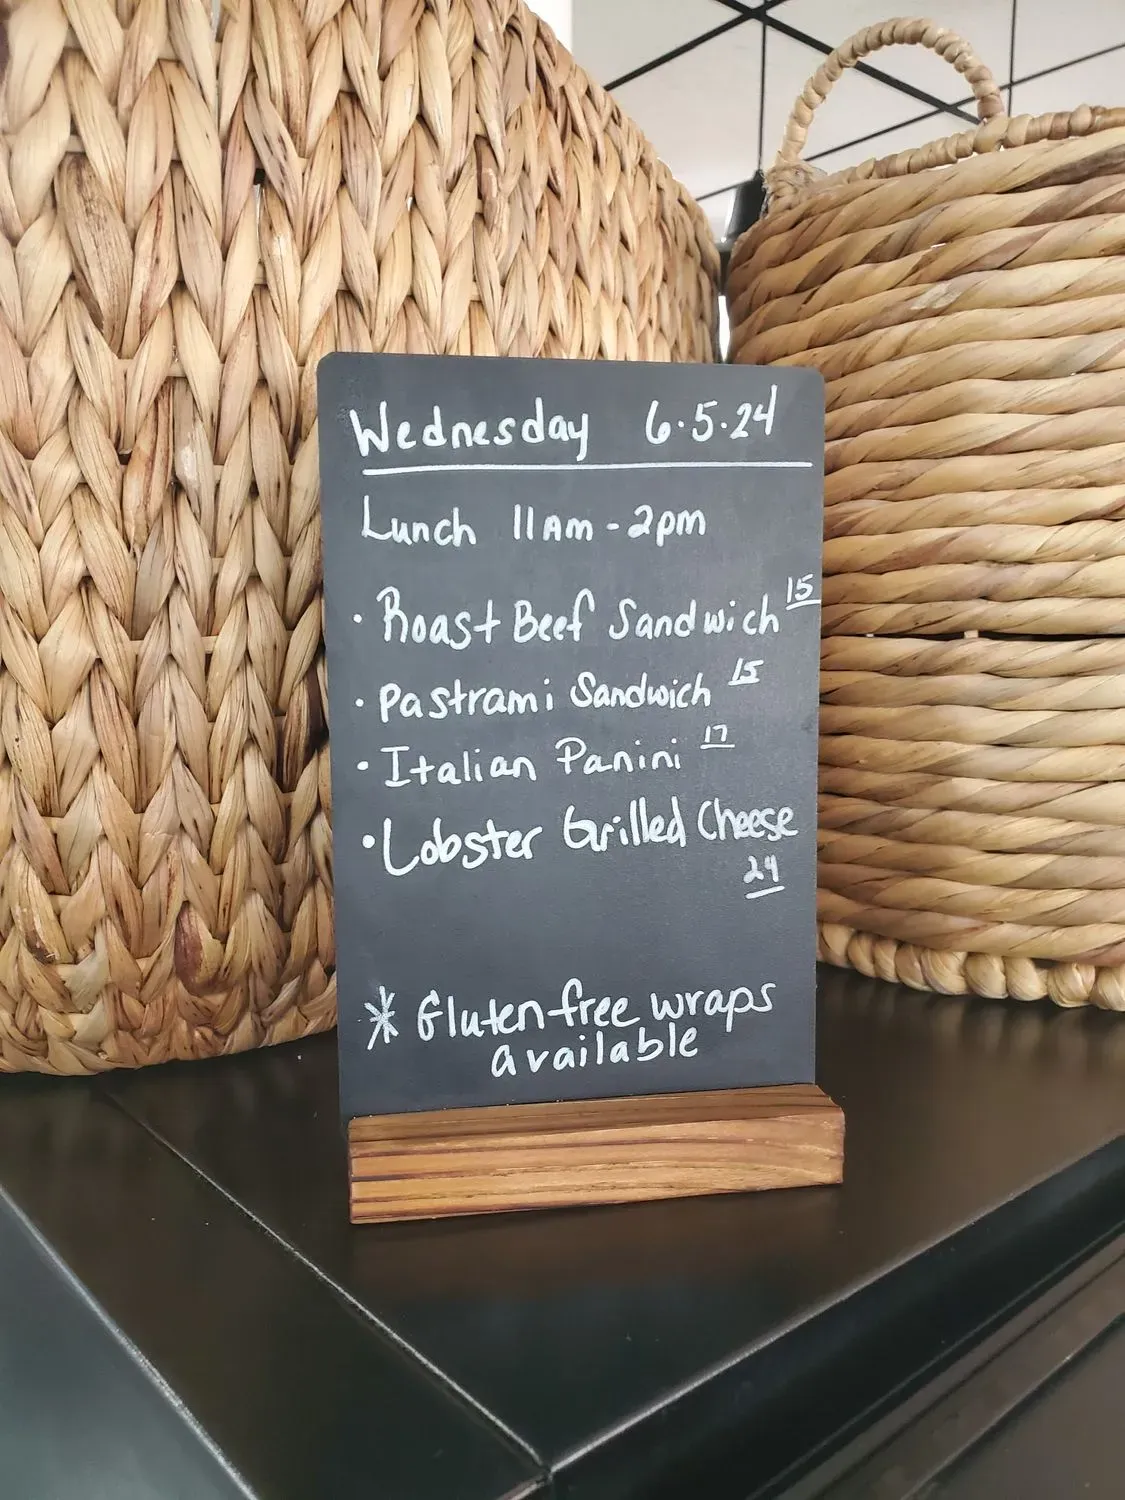 Wednesday 6.5.24
Lunch 11am-2pm
• Roast Beef Sandwich 15
• Pastrami Sandwich 15
• Italian Panini 17
• Lobster Grilled Cheese
24
* Gluten free wraps
available